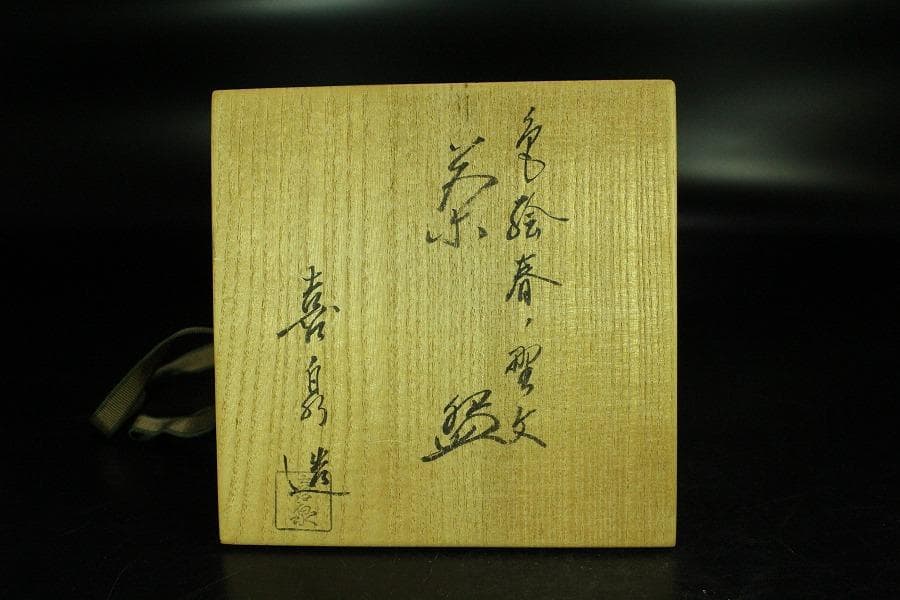 色絵春ノ野文
茶盌
喜泉造
喜泉